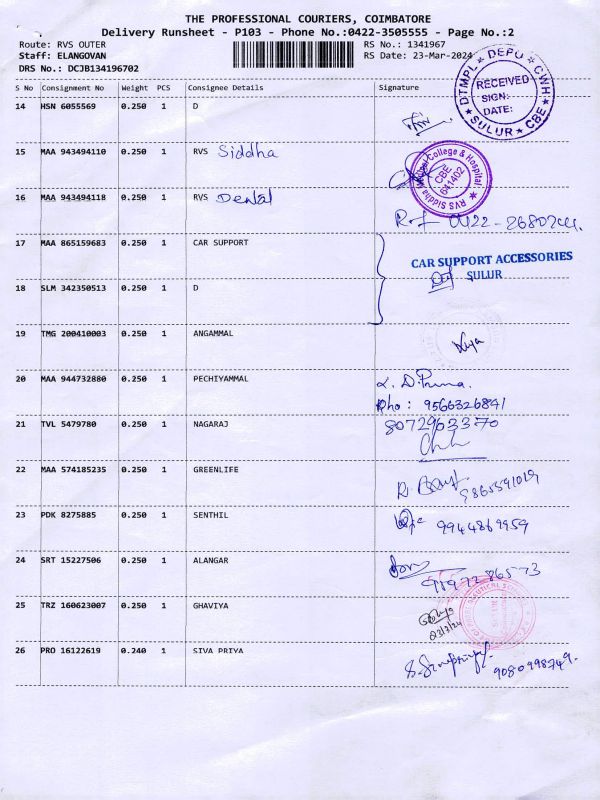 THE PROFESSIONAL COURIERS, COIMBATORE
Delivery Runsheet - P103 - Phone No.:0422-3505555 - Page No.:2
Route: RVS OUTER RS No.: 1341967
Staff: ELANGOVAN RS Date: 23-Mar-2024
DRS No.: DCJB134196702
DTMPL ★ DEPO ★ CWH
RECEIVED
SIGN:
DATE:
★ SULUR ★ CBE ★
S No Consignment No Weight PCS Consignee Details Signature
14 HSN 6055569 0.250 1 D
15 MAA 943494110 0.250 1 RVS Siddha
RVS Siddha Medical College & Hospital
CBE
641402
16 MAA 943494118 0.250 1 RVS Dental
17 MAA 865159683 0.250 1 CAR SUPPORT
CAR SUPPORT ACCESSORIES
SULUR
18 SLM 342350513 0.250 1 D
19 TMG 200410003 0.250 1 ANGAMMAL
20 MAA 944732880 0.250 1 PECHIYAMMAL
Pho: 9566326841
21 TVL 5479780 0.250 1 NAGARAJ 8072963370
22 MAA 574185235 0.250 1 GREENLIFE 9865591019
23 PDK 8275885 0.250 1 SENTHIL 9944869959
24 SRT 15227506 0.250 1 ALANGAR
25 TRZ 160623007 0.250 1 GHAVIYA
23/3/24
26 PRO 16122619 0.240 1 SIVA PRIYA
9080998749.